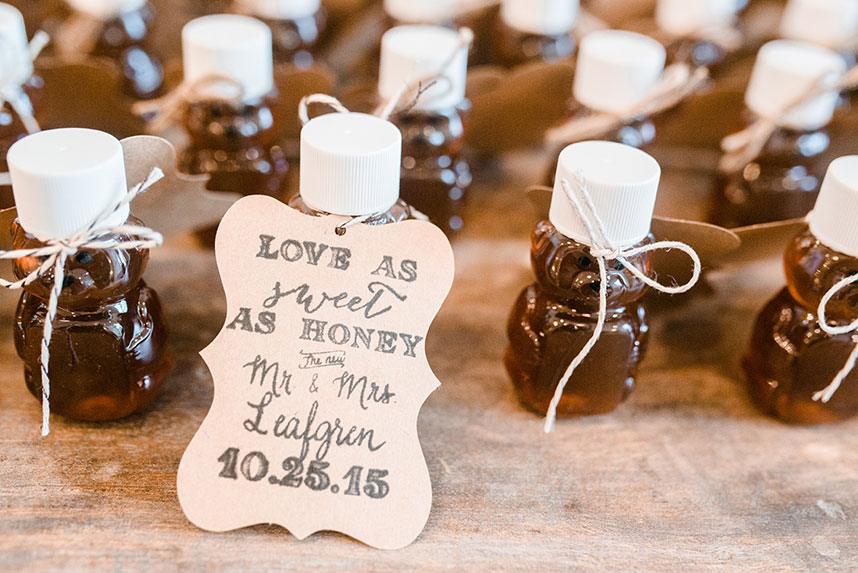 LOVE AS
sweet
AS HONEY
The new
Mr & Mrs.
Leafgren
10.25.15